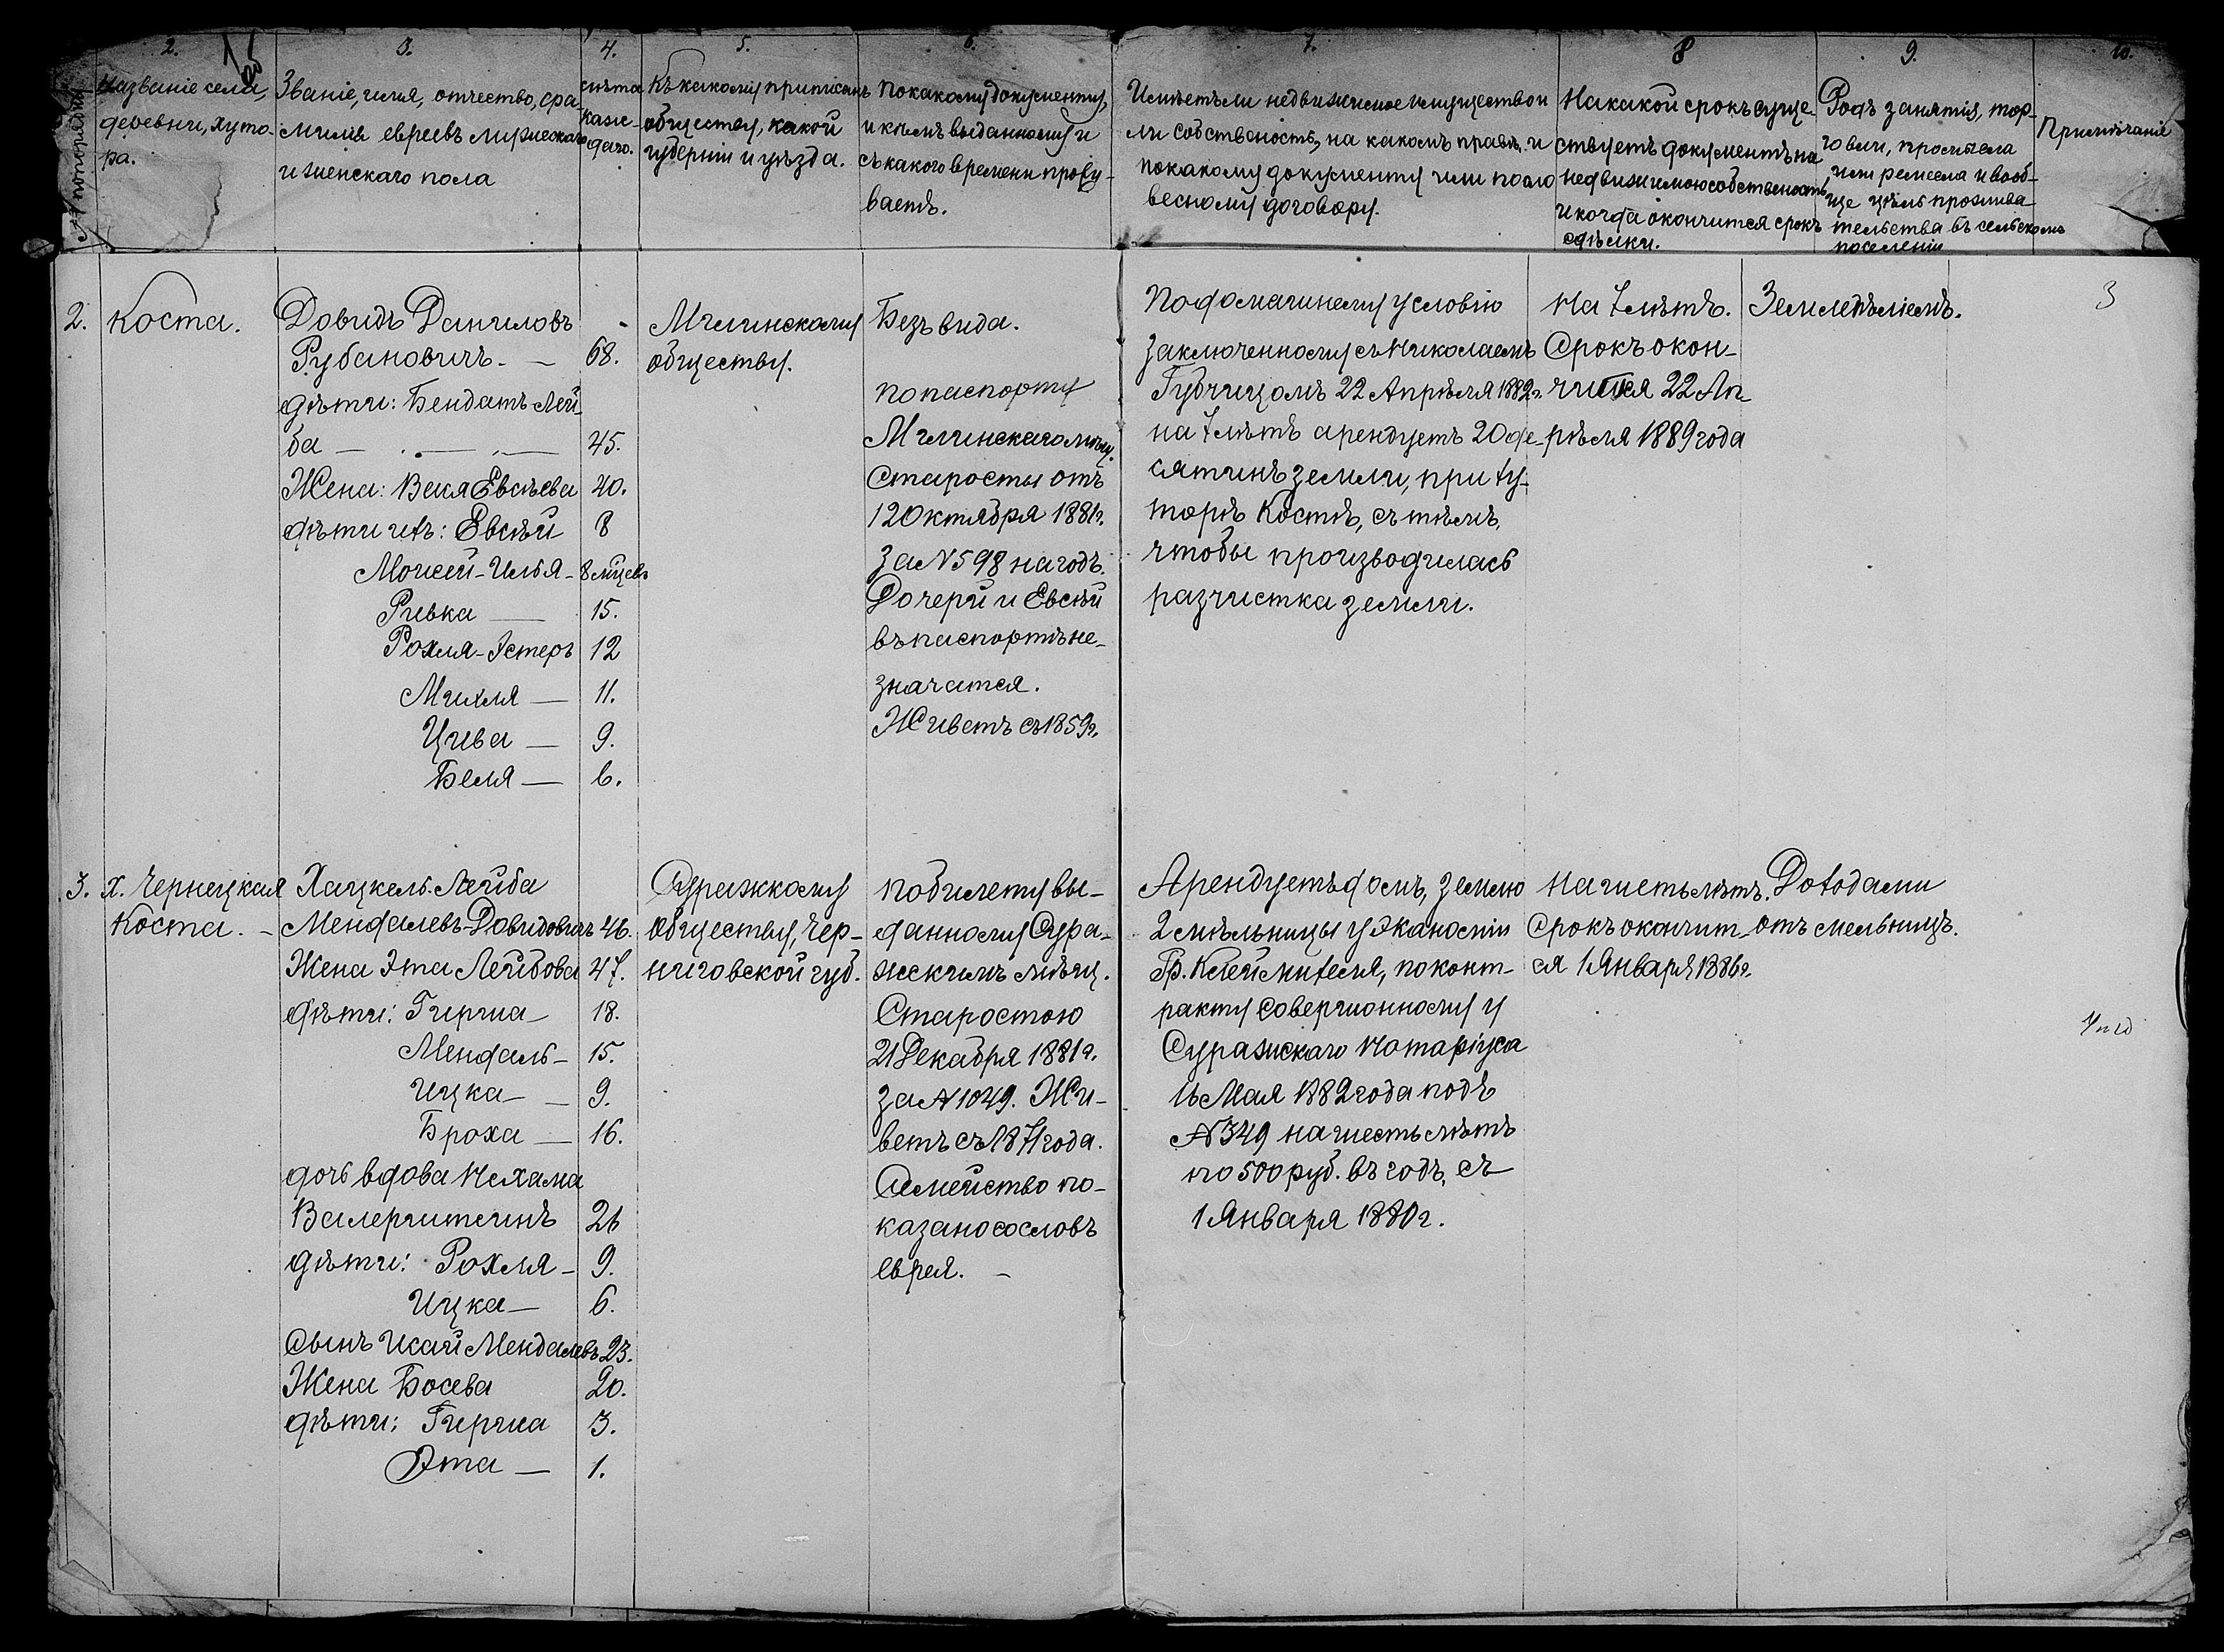 2.
3.
4.
5.
6.
7.
8
9.
10.
№ по порядку
Названіе села,
деревни, хуто-
ра.
Званіе, имя, отчество, фа-
милія евреевъ мужескаго
и женскаго пола
лѣта
кажс-
даго.
Къ какому приписанъ
обществу, какой
губерніи и уѣзда.
По какому документу,
и кѣмъ выданному и
съ какого времени прожи-
ваетъ.
Имѣетъ ли недвижимое имущество и
ли собственость, на какомъ правѣ и
по какому документу или по сло
весному договору.
На какой срокъ суще-
ствуетъ документъ на
недвижимою собственость,
и когда окончится срокъ
сдѣлки.
Родъ занятія, тор-
говли, промысла
или ремесла и вооб-
ще цѣль прожива-
тельства въ сельскомъ
поселеніи
Примѣчаніе
2.
Коста.
Довидъ Даниловъ
Рубановичъ. — 68.
дѣти: Бендатъ Лей-
ба — 45.
Жена: Веля Евсѣева 40.
дѣти ихъ: Евсѣй 8
Моисей-Илья - 8 мѣсцевъ
Ривка — 15.
Рохля-Эстеръ 12
Михля — 11.
Цива — 9.
Беля — 6.
Мглинскому
обществу.
Безъ вида.
по паспорту
Мглинскаго мѣщ.
Старосты отъ
12 Октября 1881г.
за №598 на годъ.
Дочери и Евсѣй
въ паспортѣ не-
значатся.
Живетъ съ 1859г.
По домашнему условію
заключенному съ Николаемъ
Губчицомъ 22 Апрѣля 1882г.
на 7 лѣтъ арендуетъ 20 де-
сятинъ земли, при ху-
торѣ Костѣ, съ тѣмъ,
чтобы производилась
разчистка земли.
На 7 лѣтъ.
Срокъ окон-
чится 22 Ап-
рѣля 1889 года
Земледѣліемъ.
3
3.
х. Чернецкая
Коста. -
Хацкель-Лейба
Мендалевъ Довидовичъ 46.
Жена Эта Лейбова 47.
дѣти: Гирша — 18.
Мендаль - 15.
Ицка - — 9.
Броха — 16.
дочь вдова Нехама
Валерштеинъ 26
дѣти: Рохля - 9.
Ицка — 6.
Сынъ Исай Мендалевъ 23.
Жена Босева 20.
дѣти: Гирша 3.
Эта — 1.
Суражкому
обществу, Чер-
ниговской губ.
по билету вы-
данному Сура-
жскимъ мѣщ.
Старостою
21 Декабря 1881г.
за №1049. Жи-
ветъ съ 1871 года.
Семейство по-
казано со словъ
еврея. —
Арендуетъ домъ, землю
2 мѣльницы у эканоміи
Гр. Клейнмихеля, по конт-
ракту совершонному у
Суражскаго Нотаріуса
16 Мая 1882 года подъ
№349 на шесть лѣтъ
по 500 руб. въ годъ, съ
1 Января 1880г.
На шесть лѣтъ.
Срокъ окончит-
ся 1 Января 1886г.
Доходами
отъ мельницъ.